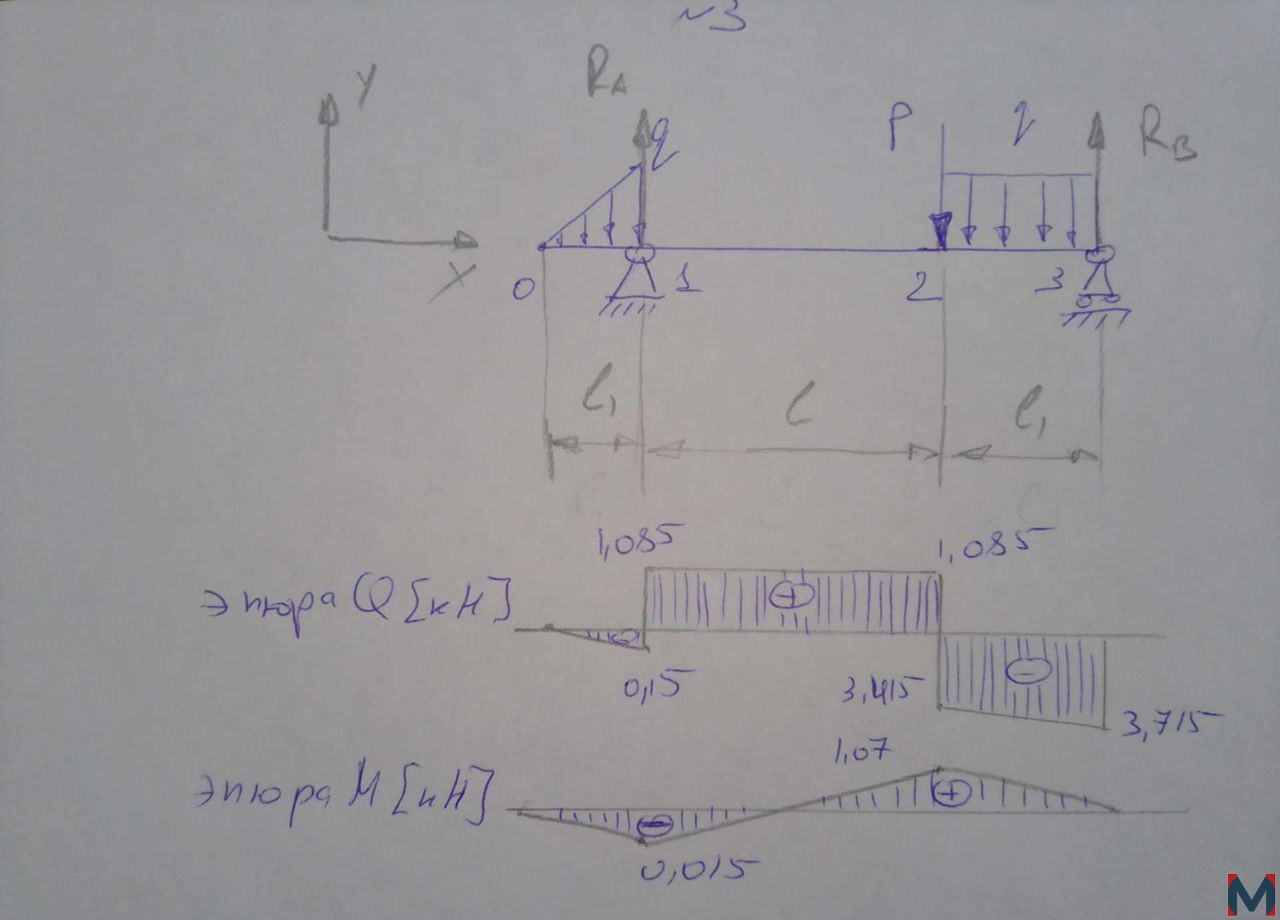 №3
Y
X
R_A
q
P
q
R_B
0
1
2
3
l₁
l
l₁
1,085
1,085
эпюра Q [кН]
0,15
3,415
3,715
1,07
эпюра М [кН]
0,015
M